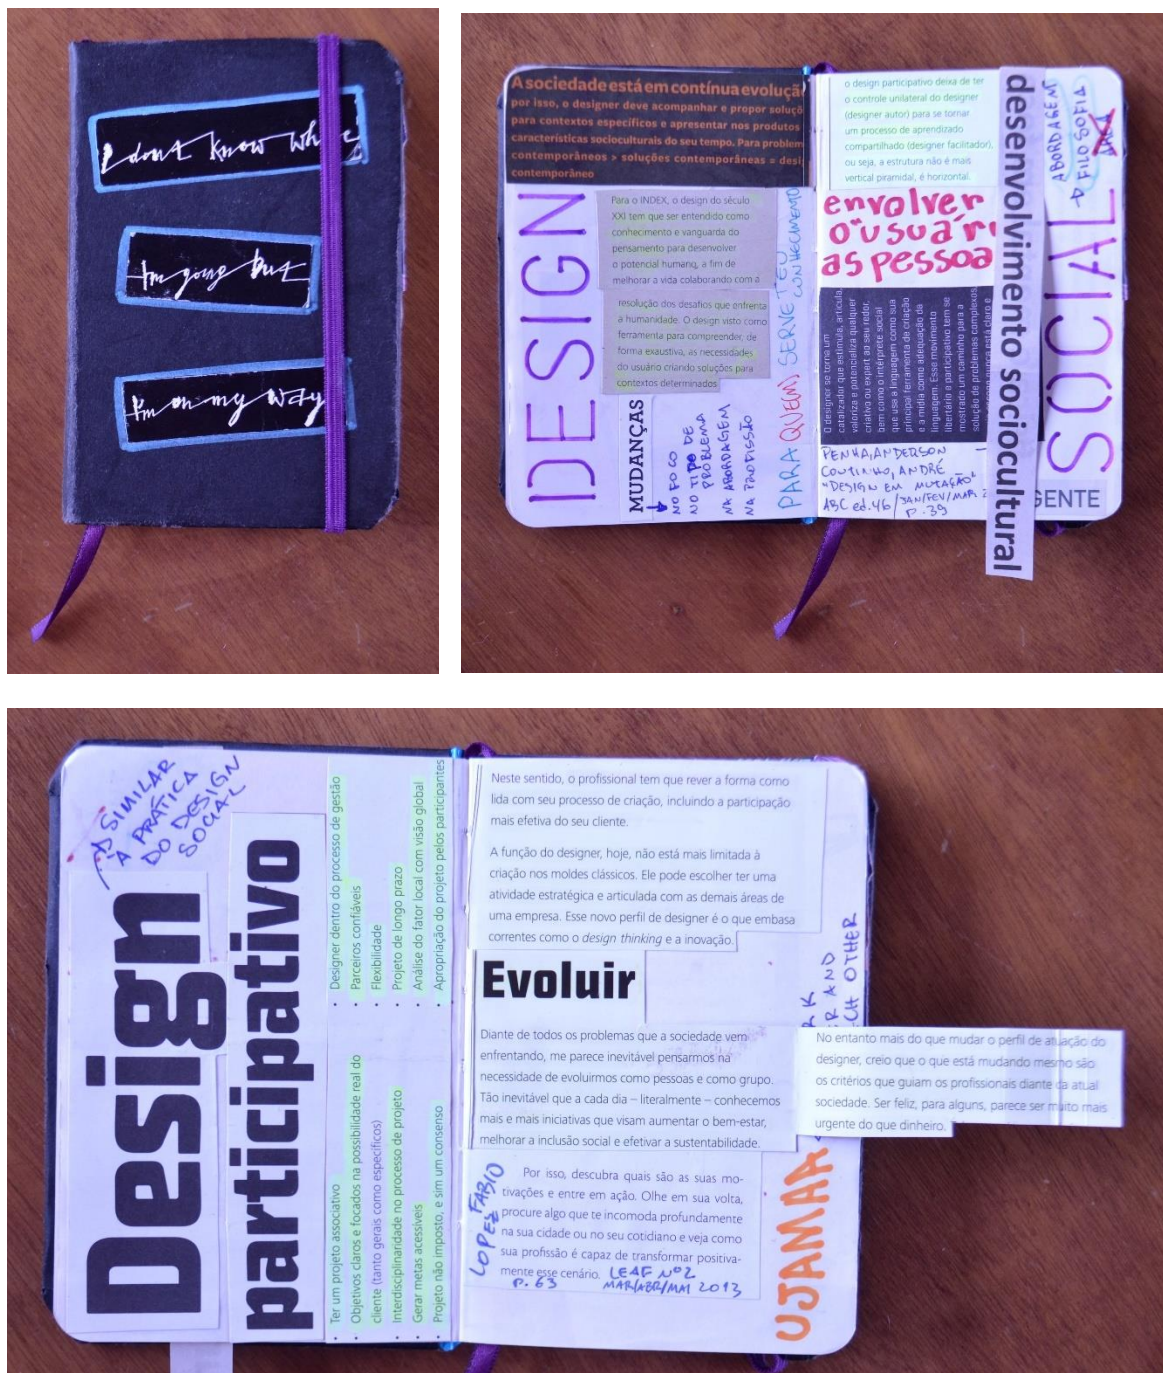 I don't know where
I'm going but
I'm on my way
A sociedade está em contínua evolução
por isso, o designer deve acompanhar e propor soluçõ
para contextos específicos e apresentar nos produtos
características socioculturais do seu tempo. Para problem
contemporâneos > soluções contemporâneas = desi
contemporâneo
DESIGN
Para o INDEX, o design do século
XXI tem que ser entendido como
conhecimento e vanguarda do
pensamento para desenvolver
o potencial humano, a fim de
melhorar a vida colaborando com a
resolução dos desafios que enfrenta
a humanidade. O design visto como
ferramenta para compreender, de
forma exaustiva, as necessidades
do usuário criando soluções para
contextos determinados
MUDANÇAS
NO FOCO
NO TIPO DE
PROBLEMA
NA ABORDAGEM
NA PROFISSÃO
PARA QUE(M) SERVE TEU
CONHECIMENTO
o design participativo deixa de ter
o controle unilateral do designer
(designer autor) para se tornar
um processo de aprendizado
compartilhado (designer facilitador),
ou seja, a estrutura não é mais
vertical piramidal, é horizontal.
envolver
o "usuár
as pessoa
O designer se torna um
catalizador que estimula, articula,
valoriza e potencializa qualquer
criativo ou expert ao seu redor,
bem como o intérprete social
que usa a linguagem como sua
principal ferramenta de criação
e a mídia como adequação da
linguagem. Esse movimento
libertário e participativo tem se
mostrado um caminho para a
solução de problemas complexos,
nunca está claro e
PENHA, ANDERSON
COUTINHO, ANDRÉ
"DESIGN EM MUTAÇÃO"
ABC ed.46/JAN/FEV/MAR 2
P.39
desenvolvimento sociocultural
ABORDAGEM
FILOSOFIA
SOCIAL
GENTE
SIMILAR
À PRÁTICA
DO DESIGN
SOCIAL
Design
participativo
• Ter um projeto associativo
• Objetivos claros e focados na possibilidade real do
cliente (tanto gerais como específicos)
• Interdisciplinaridade no processo de projeto
• Gerar metas acessíveis
• Projeto não imposto, e sim um consenso
• Designer dentro do processo de gestão
• Parceiros confiáveis
• Flexibilidade
• Projeto de longo prazo
• Análise do fator local com visão global
• Apropriação do projeto pelos participantes
Neste sentido, o profissional tem que rever a forma como
lida com seu processo de criação, incluindo a participação
mais efetiva do seu cliente.
A função do designer, hoje, não está mais limitada à
criação nos moldes clássicos. Ele pode escolher ter uma
atividade estratégica e articulada com as demais áreas de
uma empresa. Esse novo perfil de designer é o que embasa
correntes como o design thinking e a inovação.
Evoluir
Diante de todos os problemas que a sociedade vem
enfrentando, me parece inevitável pensarmos na
necessidade de evoluirmos como pessoas e como grupo.
Tão inevitável que a cada dia – literalmente – conhecemos
mais e mais iniciativas que visam aumentar o bem-estar,
melhorar a inclusão social e efetivar a sustentabilidade.
No entanto mais do que mudar o perfil de atuação do
designer, creio que o que está mudando mesmo são
os critérios que guiam os profissionais diante da atual
sociedade. Ser feliz, para alguns, parece ser muito mais
urgente do que dinheiro.
Por isso, descubra quais são as suas mo-
tivações e entre em ação. Olhe em sua volta,
procure algo que te incomoda profundamente
na sua cidade ou no seu cotidiano e veja como
sua profissão é capaz de transformar positiva-
mente esse cenário. LEAF Nº2
P. 63 MAR/ABR/MAI 2013
LOPEZ FABIO
UJAMAA
RK
ER AND
CH OTHER